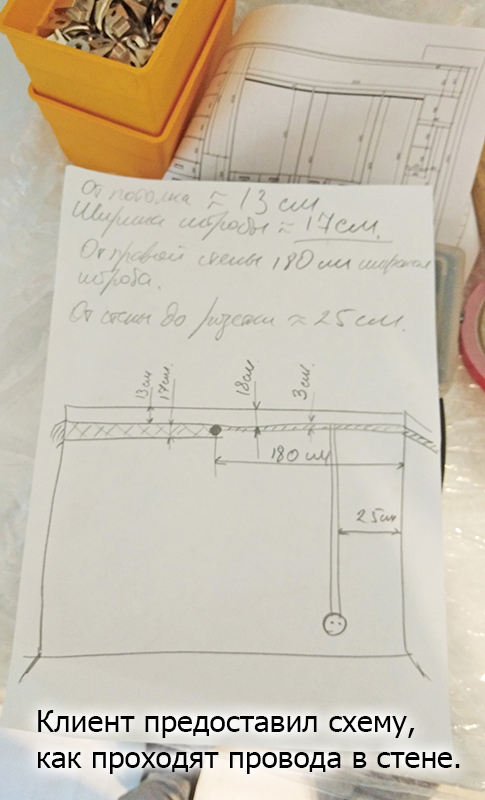 От потолка ≈ 13 см
Ширина штробы ≈ 17 см.
От правой стены 180 см широкая
штроба.
От стены до розетки ≈ 25 см.
13см 17см. 18см 3см.
180 см
25см
Клиент предоставил схему,
как проходят провода в стене.